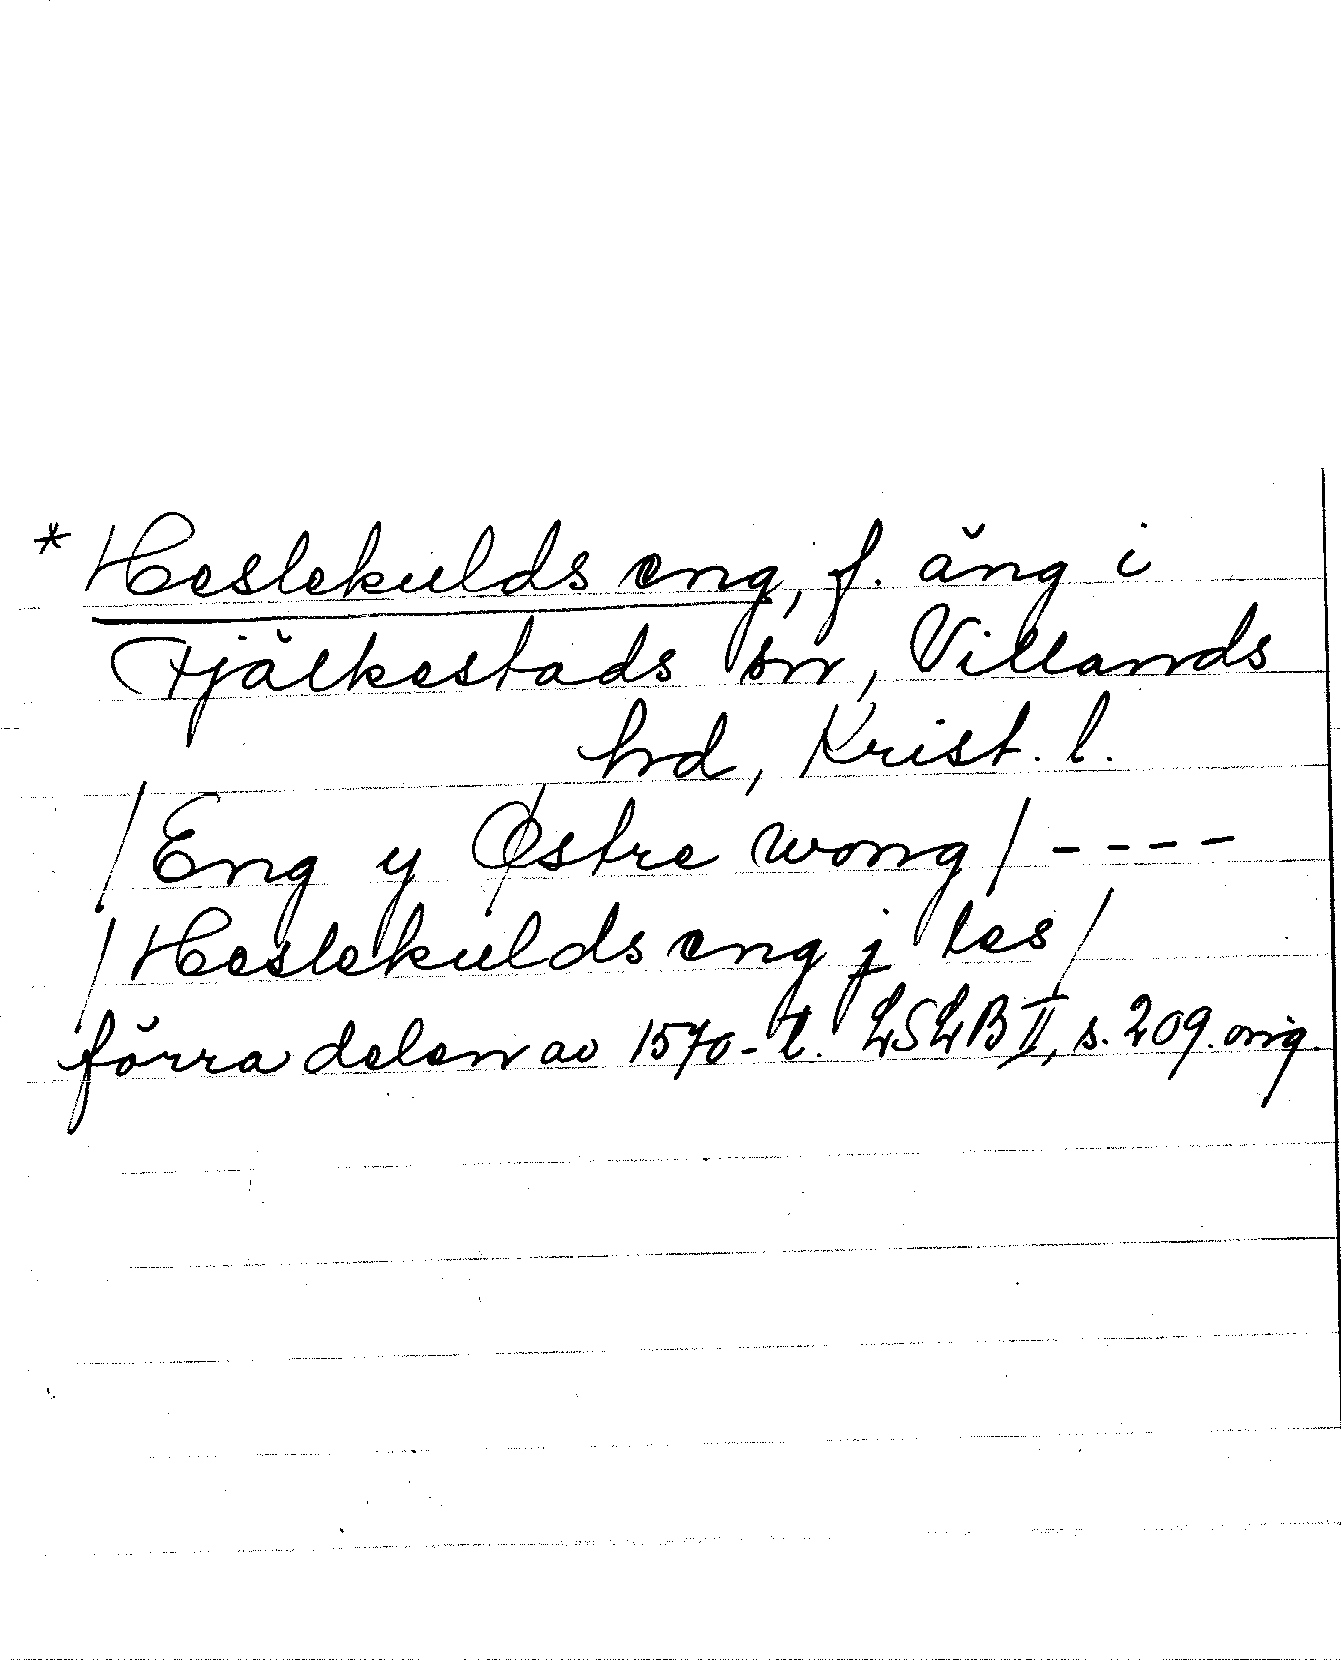 * Heslekulds eng, f. äng i
Fjälkestads sn, Villands
hd, Krist. l.
/Eng y Østre wong/ ----
/Heslekulds eng j les/
förra delen av 1570-t. LSLB II, s. 209. orig.